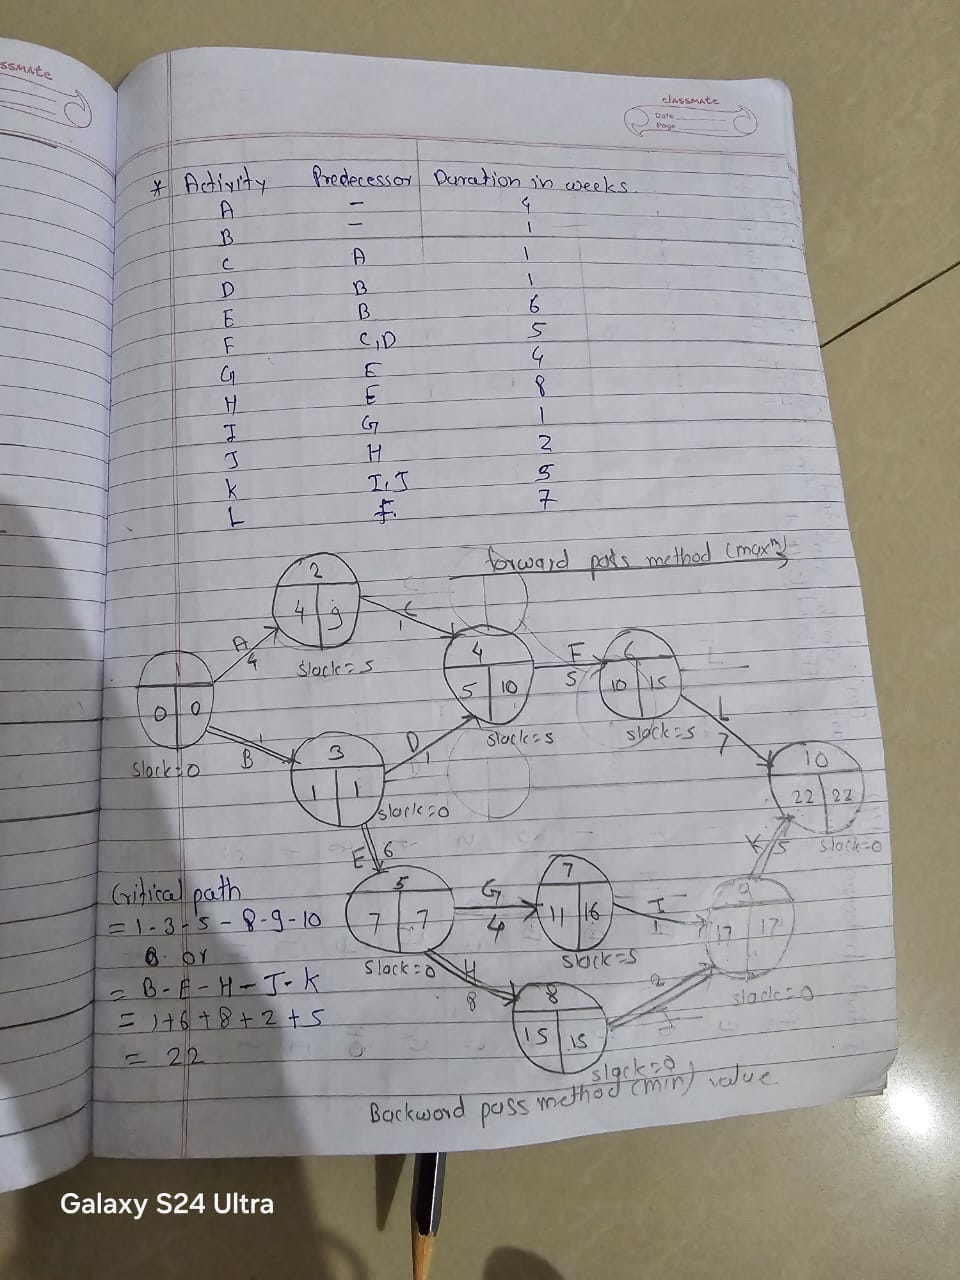 ssmate
classmate
Date
Page
* Activity Predecessor Duration in weeks.
A – 4
B – 1
C A 1
D B 1
E B 6
F C,D 5
G E 4
H E 8
I G 1
J H 2
K I,J 5
L F. 7
forward pass method (max^m)
2
4 9
slack=5
A
4
C
1
0 0
slack=0
B
1
3
1 1
slack=0
D
1
4
5 10
slack=5
F
5
6
10 15
slack=5
L
L
7
10
22 22
slack=0
E 6
5
7 7
slack=0
G
4
7
11 16
slack=5
I
1
9
17 17
slack=0
K 5
H
8
8
15 15
slack=0
2
J
Critical path
= 1-3-5-8-9-10
or
= B-E-H-J-K
= 1+6+8+2+5
= 22
Backword pass method (min) value
Galaxy S24 Ultra